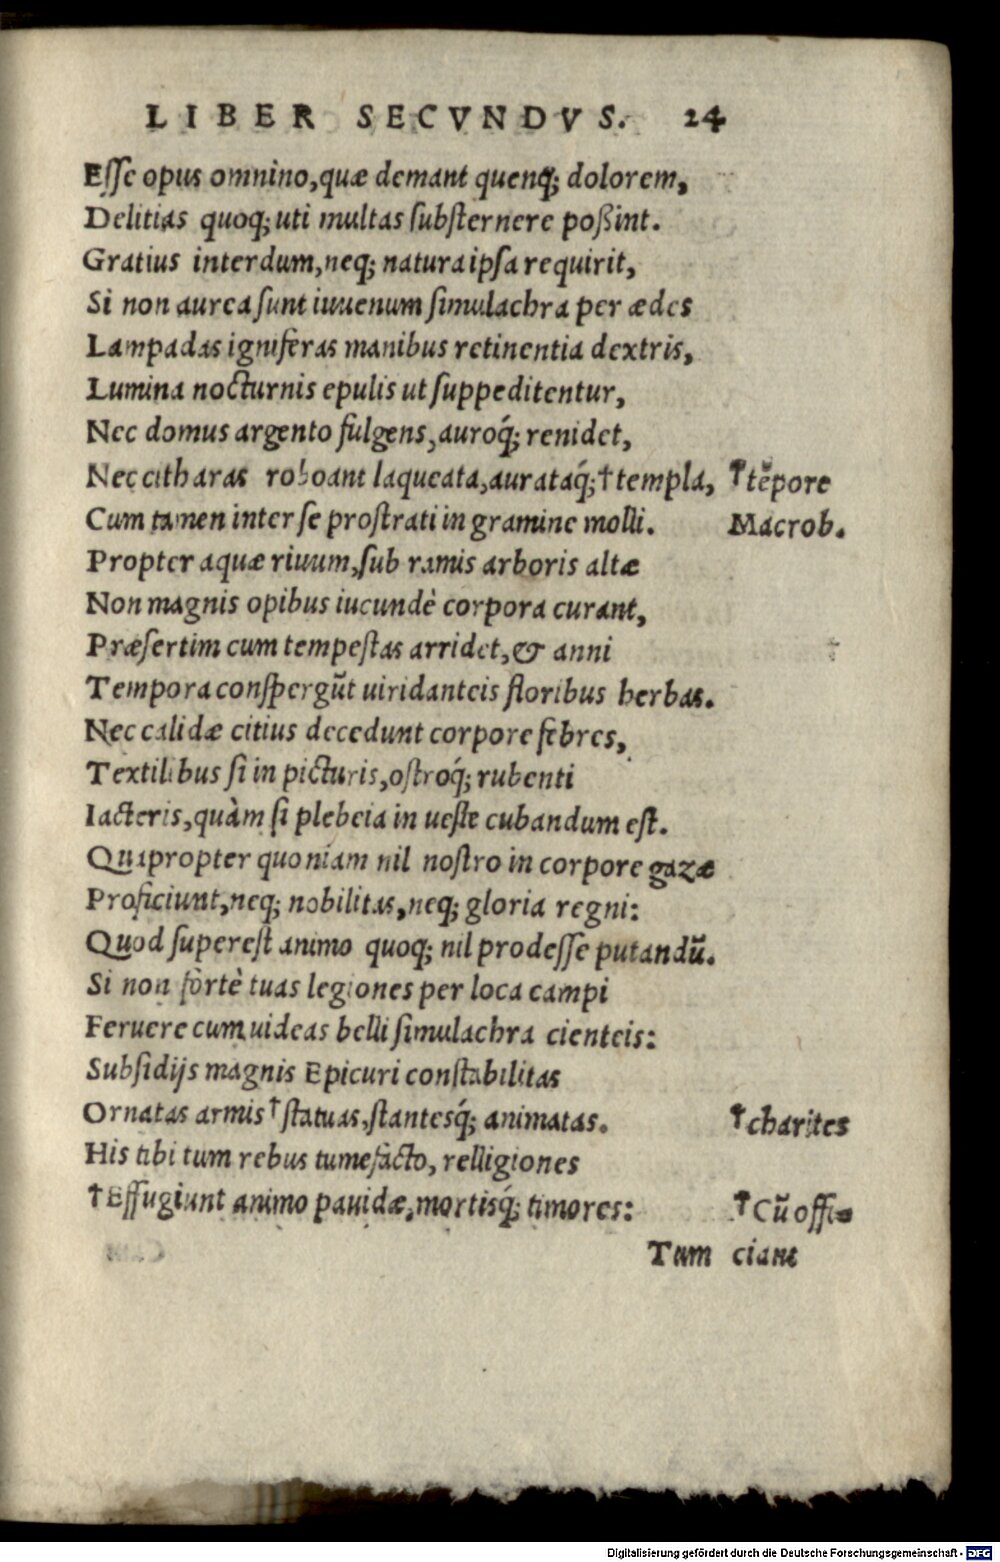 LIBER SECVNDVS. 24
Esse opus omnino, quæ demant quenq; dolorem,
Delitias quoq; uti multas substernere poßint.
Gratius interdum, neq; natura ipsa requirit,
Si non aurea sunt iuuenum simulachra per ædes
Lampadas igniferas manibus retinentia dextris,
Lumina nocturnis epulis ut suppeditentur,
Nec domus argento fulgens, auroq́; renidet,
Nec citharas roboant laqueata, aurataq́; †templa, †tẽpore
Cum tamen inter se prostrati in gramine molli. Macrob.
Propter aquæ riuum, sub ramis arboris altæ
Non magnis opibus iucundè corpora curant,
Præsertim cum tempestas arridet, & anni
Tempora conspergũt uiridanteis floribus herbas.
Nec calidæ citius decedunt corpore febres,
Textilibus si in picturis, ostroq́; rubenti
Iacteris, quàm si plebeia in ueste cubandum est.
Quapropter quoniam nil nostro in corpore gazæ
Proficiunt, neq; nobilitas, neq; gloria regni:
Quod superest animo quoq; nil prodesse putandũ.
Si non fortè tuas legiones per loca campi
Feruere cum uideas belli simulachra cienteis:
Subsidijs magnis Epicuri constabilitas
Ornatas armis †statuas, stantesq́; animatas. †charites
His tibi tum rebus tumefacto, relligiones
†Effugiunt animo pauidæ, mortisq́; timores: †Cũ offi=
Tum ciant
Digitalisierung gefördert durch die Deutsche Forschungsgemeinschaft - DFG